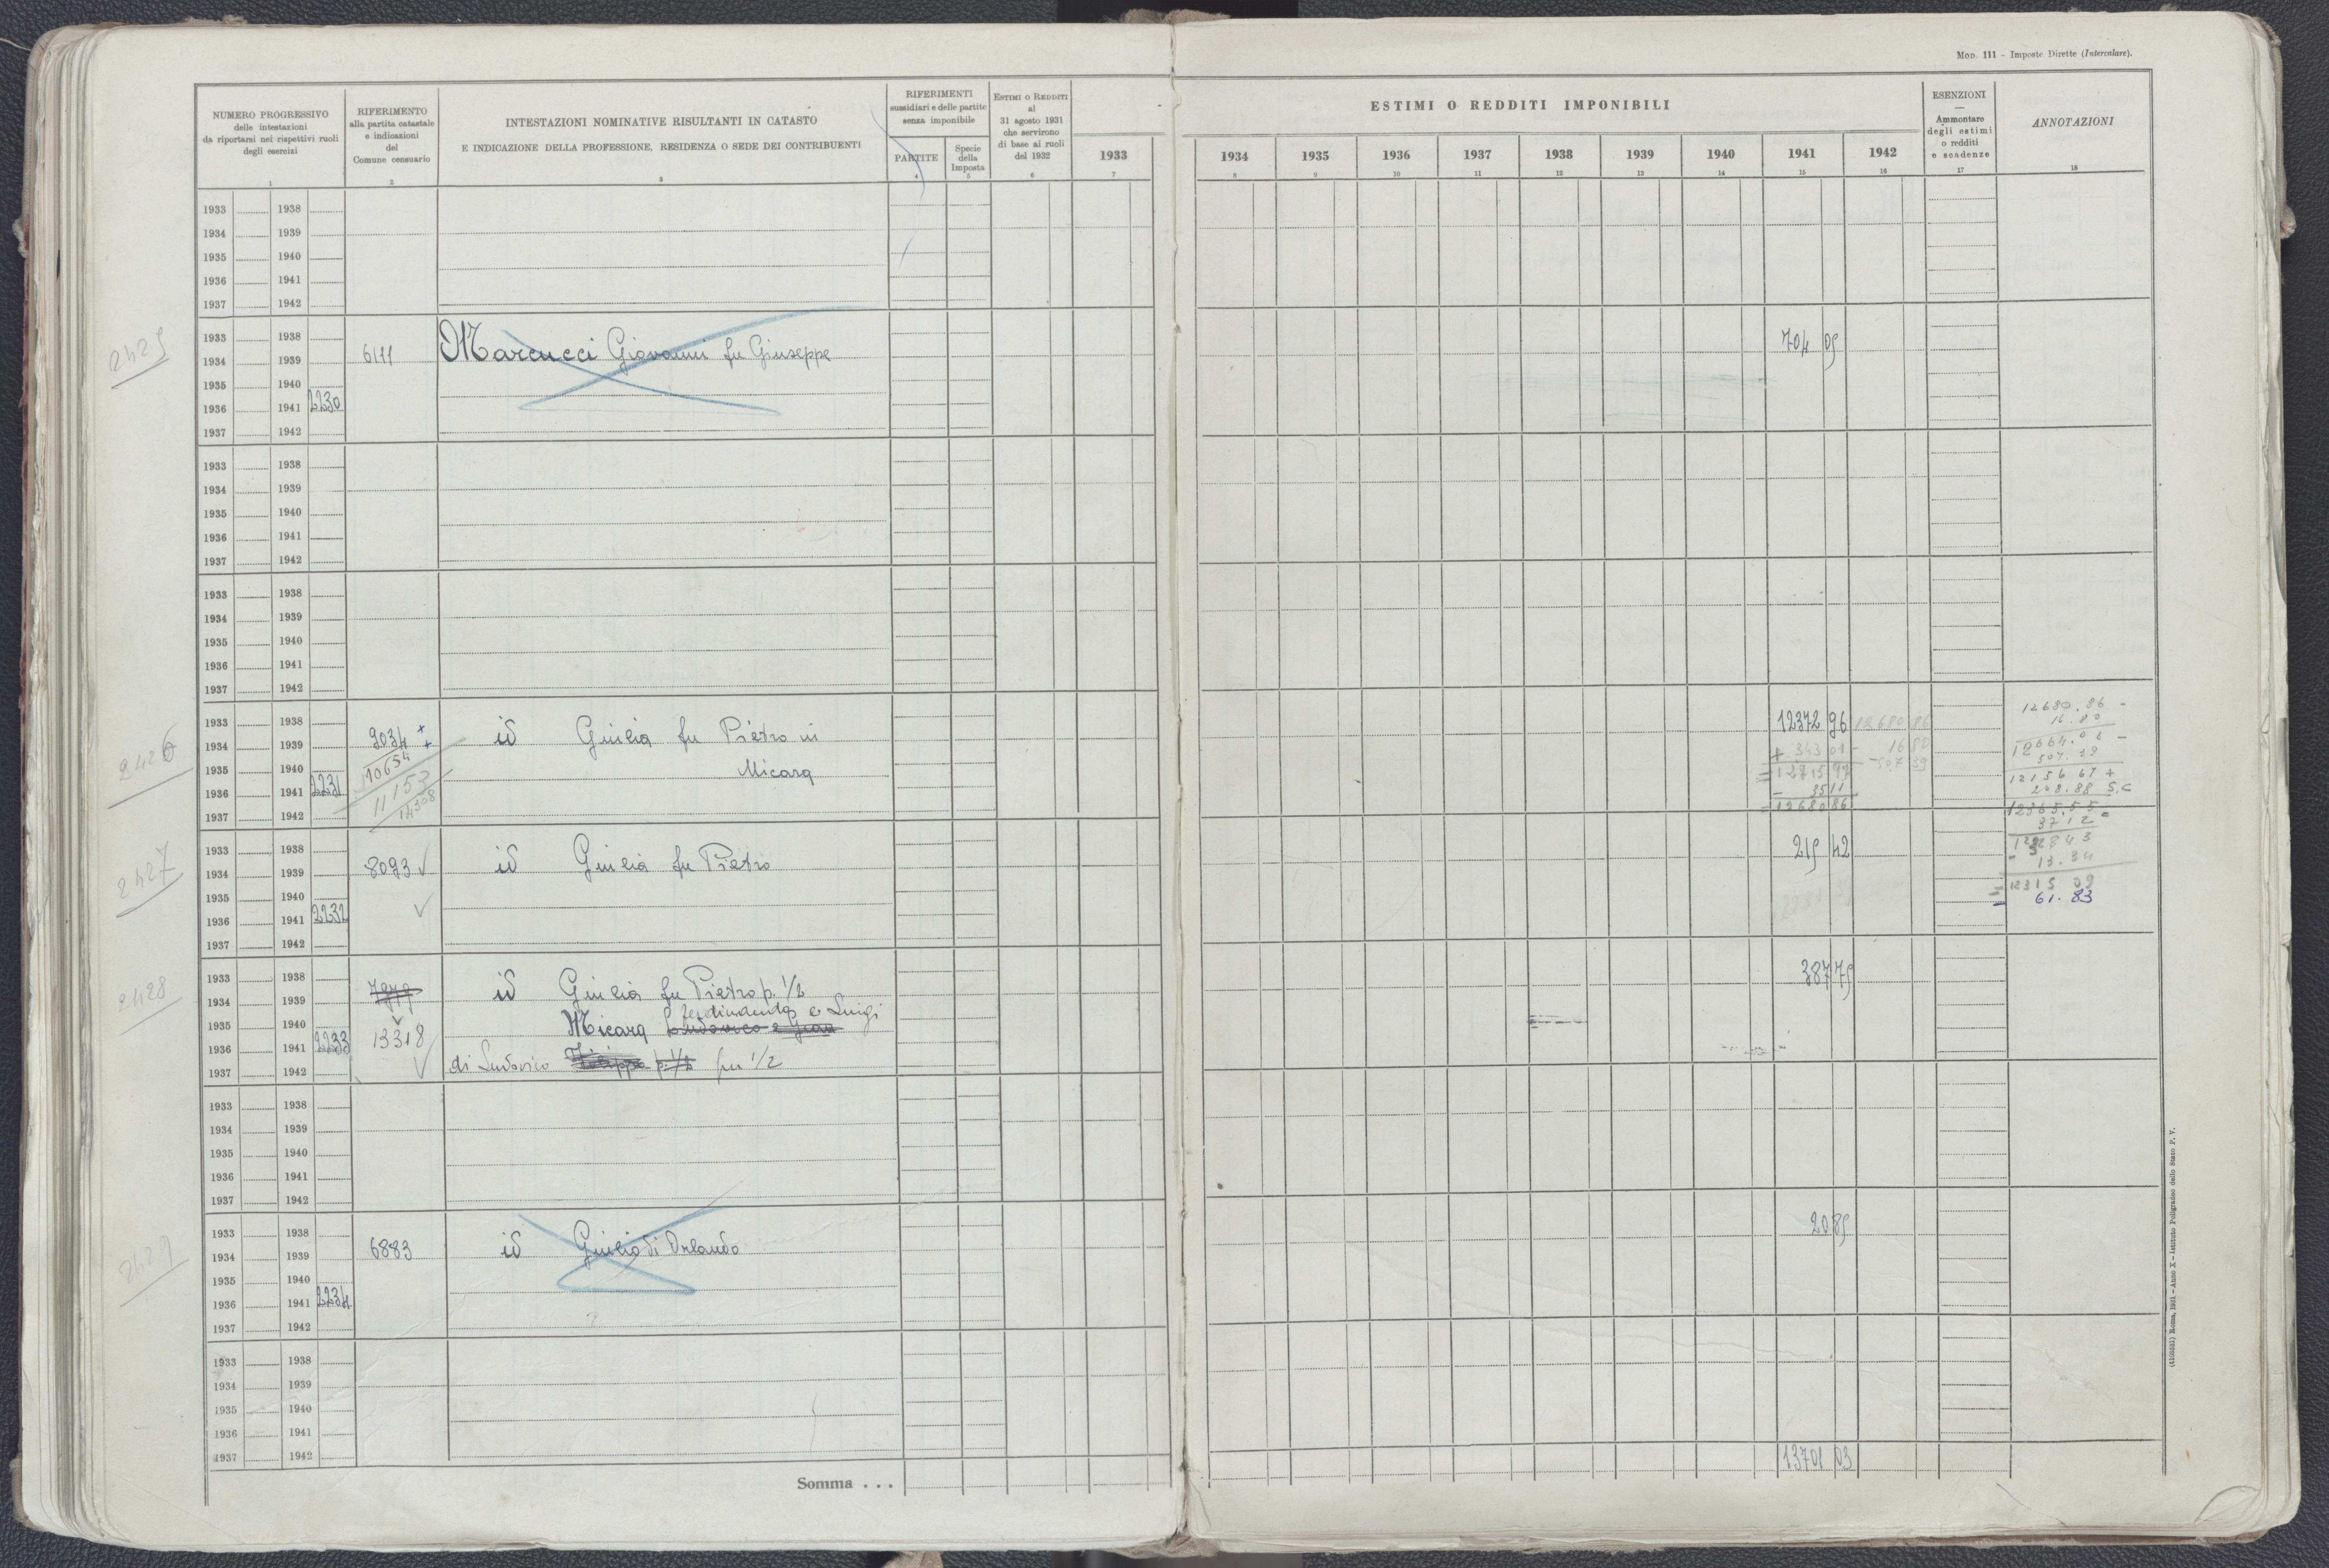 Mod. 111 - Imposte Dirette (Intercalare).
NUMERO PROGRESSIVO
delle intestazioni
da riportarsi nei rispettivi ruoli
degli esercizi
1
RIFERIMENTO
alla partita catastale
e indicazioni
del
Comune censuario
2
INTESTAZIONI NOMINATIVE RISULTANTI IN CATASTO
E INDICAZIONE DELLA PROFESSIONE, RESIDENZA O SEDE DEI CONTRIBUENTI
3
RIFERIMENTI
sussidiari e delle partite
senza imponibile
PARTITE
4
Specie
della
Imposta
5
ESTIMI O REDDITI
al
31 agosto 1931
che servirono
di base ai ruoli
del 1932
6
1933
7
ESTIMI O REDDITI IMPONIBILI
1934 1935 1936 1937 1938 1939 1940 1941 1942
8 9 10 11 12 13 14 15 16
ESENZIONI
—
Ammontare
degli estimi
o redditi
e scadenze
17
ANNOTAZIONI
18
1933 1938
1934 1939
1935 1940
1936 1941
1937 1942
2425
1933 1938
1934 1939 6111 Marcucci Giovanni fu Giuseppe 704 05
1935 1940
1936 1941 2230
1937 1942
1933 1938
1934 1939
1935 1940
1936 1941
1937 1942
1933 1938
1934 1939
1935 1940
1936 1941
1937 1942
2426
1933 1938 9034 id Giulia fu Pietro in 12372 96 12680 86 12680.86 -
1934 1939 10654 + 343 01 - 16 80 16.80
1935 1940 11153 Micara = 12715 97 - 507 39 12664.06 -
1936 1941 2231 14308 - 35 11 507.39
1937 1942 = 12680 86 12156 67 +
208.88 S.C
12365.55 -
37 12
1933 1938
1934 1939 8093 id Giulia fu Pietro 215 42
1935 1940 13.34
1936 1941 2232 12315 09
1937 1942 61.83
2427
2428
1933 1938 7979 id Giulia fu Pietro p. 1/2 387 75
1934 1939 Ferdinando e Luigi
1935 1940 13318 Micara Ludovico e Gian
1936 1941 2233
1937 1942 di Ludovico Filippo p. 1/2 per 1/2
1933 1938
1934 1939
1935 1940
1936 1941
1937 1942
2429
1933 1938
1934 1939 6883 id Giulio di Orlando 20 85
1935 1940
1936 1941 2234
1937 1942
1933 1938
1934 1939
1935 1940
1936 1941
1937 1942
Somma . . . 13701 03
(4102531) Roma, 1931 - Anno X - Istituto Poligrafico dello Stato P. V.